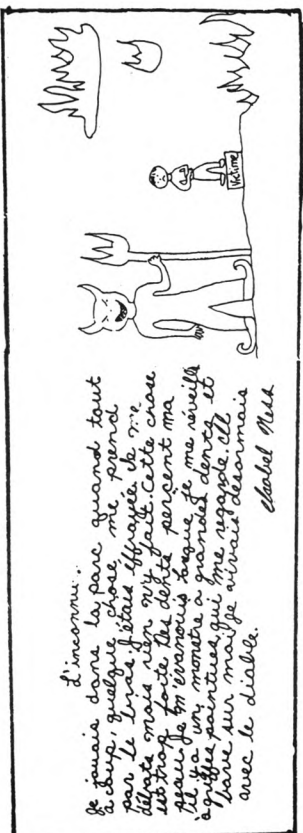 L'inconnu...
Je jouais dans la parc quand tout
à coup, quelque chose me prend
par le bras j'étais effrayée Je me
débats mais rien n'y fait. Cette chose
est trop forte Ses dents percent ma
peau Je m'évanouis Lorsque je me réveille
il y a un monstre a grandes dents et
a griffes pointues qui me regarde. Il
bave sur moi! Je vivrais désormais
avec le diable.
Isabel
Victime